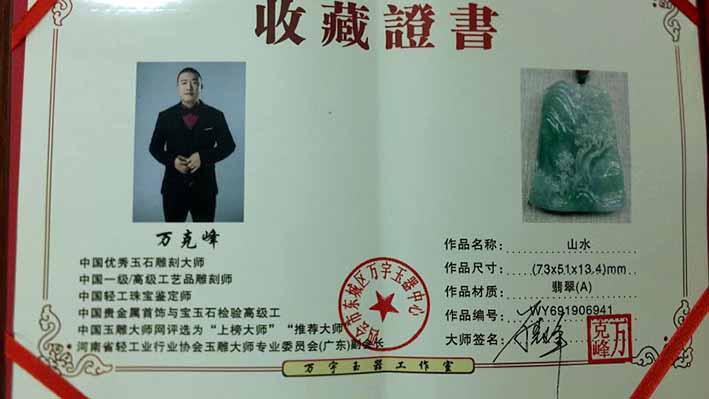 收藏證書
万克峰
中国优秀玉石雕刻大师
中国一级/高级工艺品雕刻师
中国轻工珠宝鉴定师
中国贵金属首饰与宝玉石检验高级工
中国玉雕大师网评选为“上榜大师” “推荐大师”
河南省轻工业行业协会玉雕大师专业委员会(广东)副会长
作品名称: 山水
作品尺寸: (73x51x13.4)mm
作品材质: 翡翠(A)
作品编号: WY691906941
大师签名:
万克峰
会市东城区万字玉器中心
万字玉器工作室